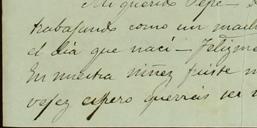 Mi querido Pepe –
trabajando como un mach
el día que nací – felizme
En nuestra niñez fuiste m
vejez espero querrás ser m